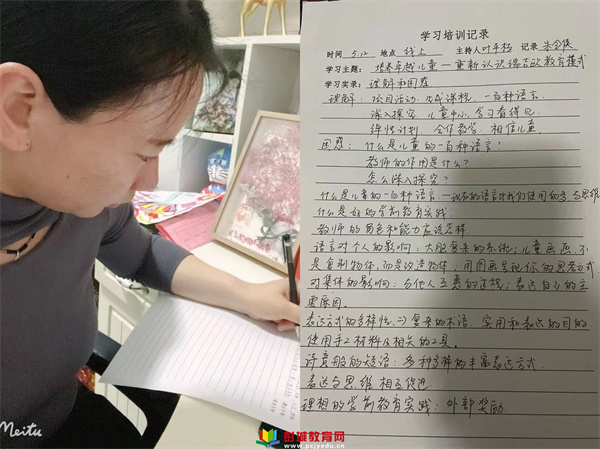 学习培训记录
时间 5.12 地点 线上 主持人 叶平枝 记录
学习主题： 培养卓越儿童—重新认识瑞吉欧教育模式
学习实录： 理解和困惑
理解：项目活动 生成课程 一百种语言
深入探究 儿童中心 学习看得见
弹性计划 合作教学 相信儿童
困惑：什么是儿童的一百种语言？
教师的作用是什么？
怎么深入探究？
什么是儿童的一百种语言—
什么是好的学前教育实践
教师的角色和能力应该怎样
语言对个人的影响：大脑复杂的系统；儿童画画不
是复制物体，而是设法物体；用图画呈现你的思考方式
对集体的影响：与他人互惠的过程；表达自己的主
要原因。
表达方式的多样性 复杂的术语 实用和表达的目的
使用手工材料及相关的工具。
诗意般的短语：多种多样的丰富表达方式
表达与思维相互促进
理想的学前教育实践：外部奖励.
Meitu
彭城教育网
www.pcjyedu.cn